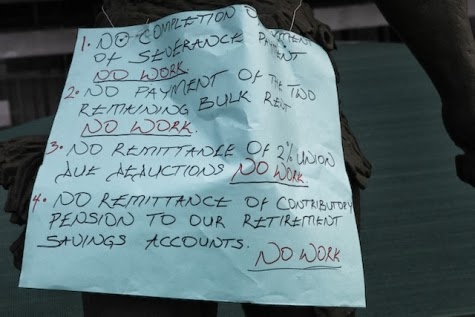 1. NO COMPLETION
OF SEVERANCE PAYMENT
NO WORK
2. NO PAYMENT OF THE TWO
REMAINING BULK RENT
NO WORK.
3. NO REMITTANCE OF 2% UNION
DUE DEDUCTIONS NO WORK
4. NO REMITTANCE OF CONTRIBUTORY
PENSION TO OUR RETIREMENT
SAVINGS ACCOUNTS.
NO WORK